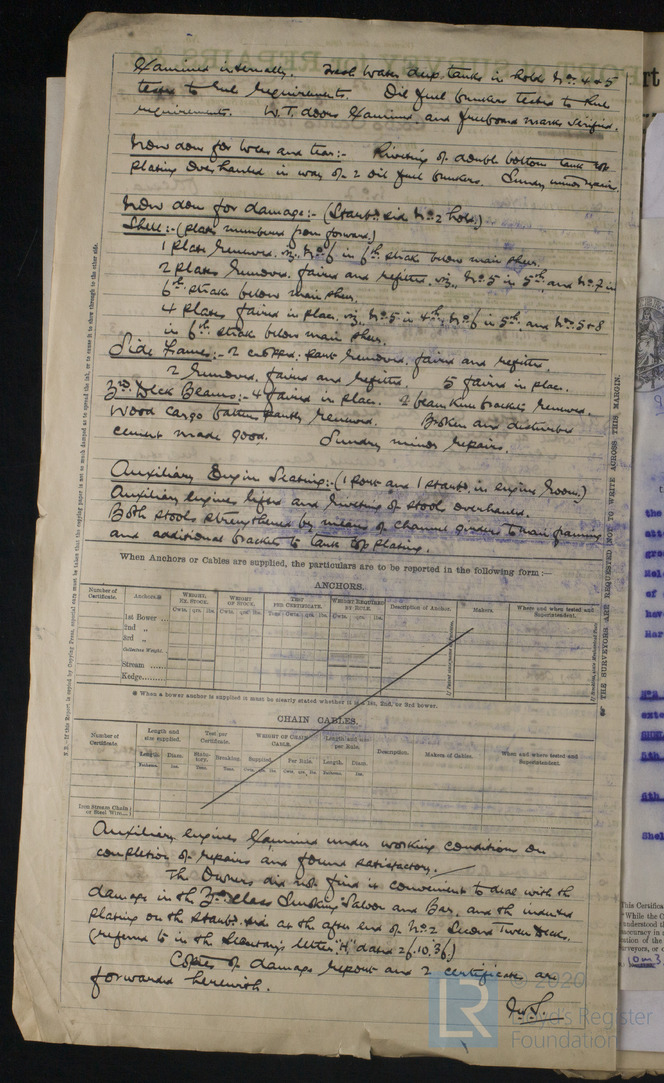 Examined internally. Fresh water deep tanks in holds Nos. 4 & 5
tested to Rule requirements. Oil fuel bunkers tested to Rule
requirements. W.T. doors examined and freeboard marks verified.
Now done for wear and tear:- Riveting of double bottom tank top
plating overhauled in way of 2 oil fuel bunkers. Sundry minor repairs.
Now done for damage:- (Starbd. side No. 2 hold.)
Shell:- (plates numbered from forward.)
1 plate renewed, viz, No. 6 in 6th strake below main sheer.
2 plates removed, faired and refitted, viz, No. 5 in 5th, and No. 7 in
6th strake below main sheer.
4 plates faired in place, viz, No. 5 in 4th, No. 6 in 5th, and Nos. 5 & 8
in 6th strake below main sheer.
Side Frames:- 2 cropped, part removed, faired and refitted.
2 removed, faired and refitted. 5 faired in place.
3rd Deck Beams:- 4 faired in place. 2 beam knee brackets renewed.
Wood cargo battens partly renewed. Broken and disturbed
cement made good. Sundry minor repairs.
Auxiliary Engine Seating:- (1 port and 1 starbd. in engine room.)
Auxiliary engines lifted and riveting of stools overhauled.
Both stools strengthened by means of channel girders to main framing
and additional brackets to tank top plating.
When Anchors or Cables are supplied, the particulars are to be reported in the following form :—
ANCHORS.
Number of Certificate. Anchors.※ WEIGHT, EX. STOCK. WEIGHT OF STOCK. TEST PER CERTIFICATE. WEIGHT REQUIRED BY RULE. Description of Anchor. Makers. Where and when tested and Superintendent.
1st Bower ...
2nd „
3rd „
Collective Weight.
Stream ......
Kedge.......
※ When a bower anchor is supplied it must be clearly stated whether it is a 1st, 2nd, or 3rd bower.
CHAIN CABLES.
Number of Certificate Length and size supplied. Test per Certificate. WEIGHT OF CHAIN CABLE. Length and size per Rule. Description. Makers of Cables. When and where tested and Superintendent.
Length. Diam. Statutory. Breaking. Supplied. Per Rule. Length. Diam.
Iron Stream Chain or Steel Wire...
Auxiliary engines examined under working condition on
completion of repairs and found satisfactory.
The Owners did not find it convenient to deal with the
damage in the 3rd class Smoking Saloon and Bar, and the indented
plating on the starbd. side at the after end of No. 2 Second Tween Deck.
(referred to in the Secretary's letter "H" dated 21.10.36)
Copies of damage report and 2 certificates are
forwarded herewith.
© 2020
Lloyd's Register
Foundation